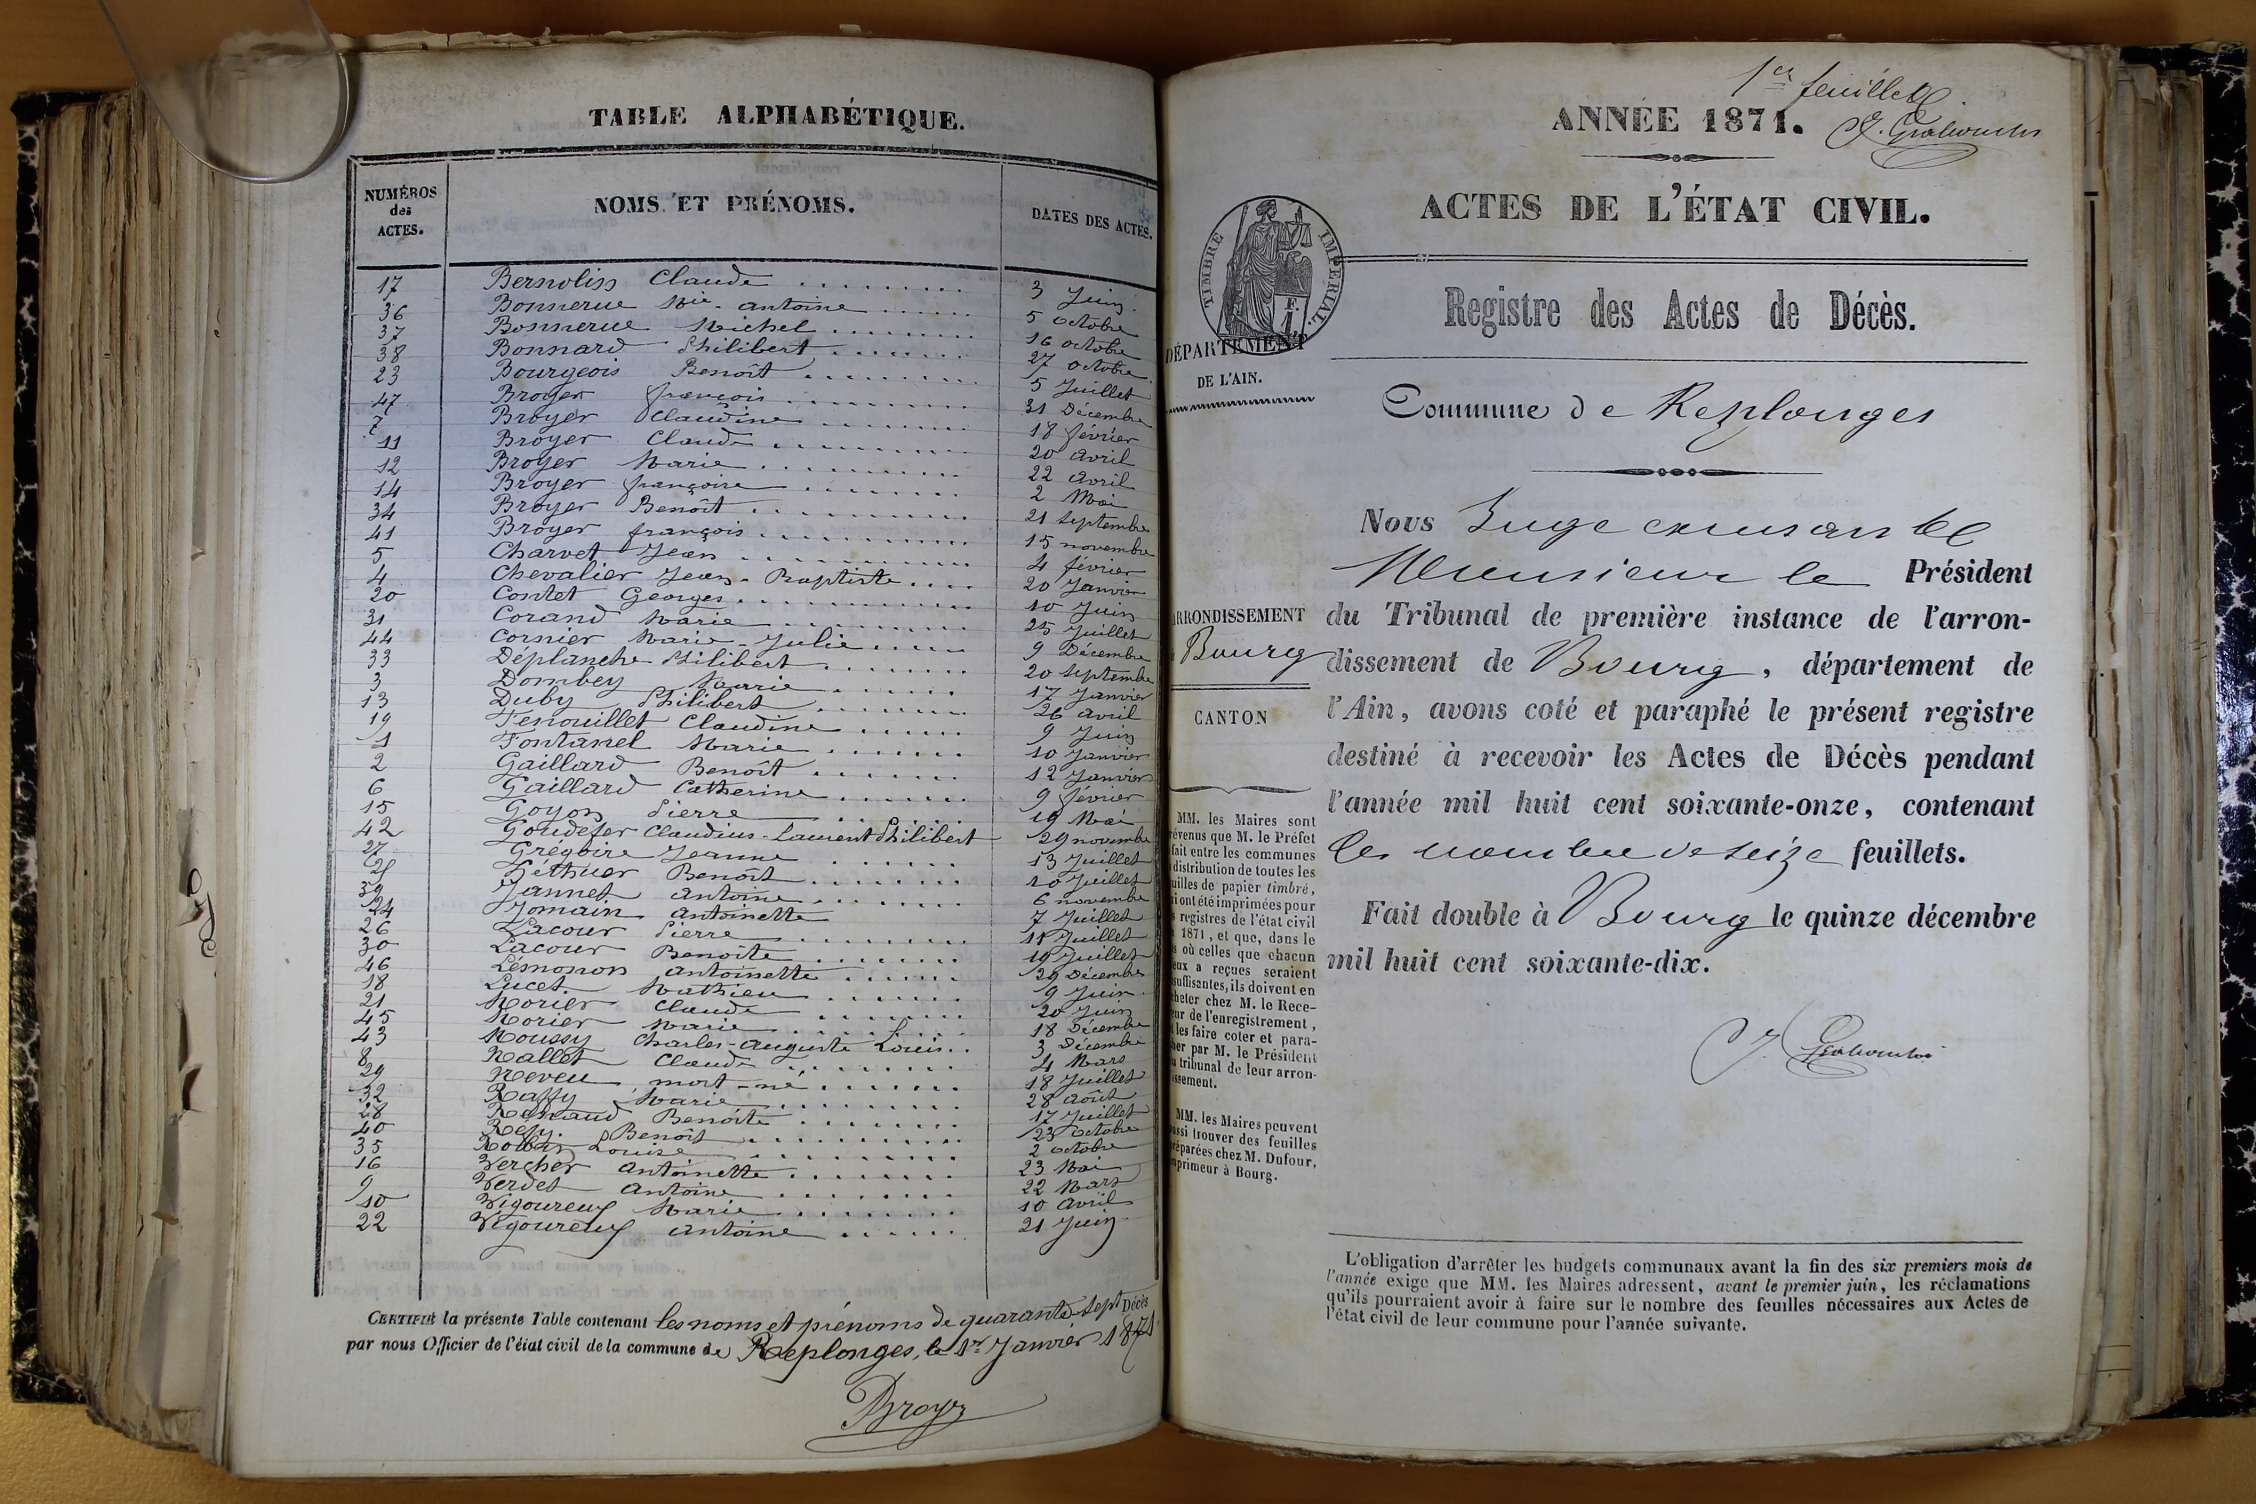 TABLE ALPHABÉTIQUE.
NUMÉROS des ACTES. NOMS ET PRÉNOMS. DATES DES ACTES.
17 Bernolin Claude 3 Juin
36 Bonnerue Mie - Antoine 5 octobre
37 Bonnerue Michel 16 octobre
38 Bonnard Philibert 27 octobre
23 Bourgeois Benoît 5 Juillet
47 Broyer françois 31 Décembre
7 Broyer Claudine 18 février
11 Broyer Claude 20 avril
12 Broyer Marie 22 avril
14 Broyer françoise 2 Mai
34 Broyer Benoît 21 septembre
41 Broyer françois 15 novembre
5 Charvet Jean 4 février
4 Chevalier Jean - Baptiste 20 Janvier
20 Contet Georges 10 Juin
31 Corand Marie 25 Juillet
44 Cornier Marie - Julie 9 Décembre
33 Déplanche Philibert 20 septembre
3 Dombey Marie 17 Janvier
13 Duby Philibert 26 avril
19 Fenouillet Claudine 9 Juin
1 Fontanel Marie 10 Janvier
2 Gaillard Benoît 12 Janvier
6 Gaillard Catherine 9 février
15 Goyon Pierre 19 Mai
42 Goudefer Claudius - Laurent Philibert 29 novembre
27 Grégoire Jeanne 13 Juillet
25 Géthuer Benoît 10 Juillet
39 Jannet Antoine 6 novembre
24 Jomain Antoinette 7 Juillet
26 Lacour Pierre 11 Juillet
30 Lacour Benoîte 19 Juillet
46 Lémonon Antoinette 29 Décembre
18 Lucet Mathieu 9 Juin
21 Morier Claude 20 Juin
45 Morier Marie 18 Décembre
43 Moussy Charles - Auguste Louis 3 Décembre
8 Nallet Claude 4 Mars
29 Neveu mort - né 18 Juillet
32 Raffy Marie 28 août
28 Renaud Benoîte 17 Juillet
40 Benoît 23 octobre
35 Louise 2 octobre
16 Vercher Antoinette 23 Mai
9 Verdet Antoine 22 Mars
10 Vigoureux Marie 10 avril
22 Vigoureux Antoine 21 Juin
CERTIFIÉ la présente Table contenant les noms et prénoms de quarante-sept Décès
par nous Officier de l'état civil de la commune de Replonges, le 1er Janvier 1871
Broyer
1er feuillet
ANNÉE 1871.
ACTES DE L'ÉTAT CIVIL.
TIMBRE IMPÉRIAL.
Registre des Actes de Décès.
DÉPARTEMENT
DE L'AIN.
Commune de Replonges
Nous Juge
Monsieur le Président
du Tribunal de première instance de l'arron-
dissement de Bourg, département de
l'Ain, avons coté et paraphé le présent registre
destiné à recevoir les Actes de Décès pendant
l'année mil huit cent soixante-onze, contenant
le nombre de seize feuillets.
Fait double à Bourg le quinze décembre
mil huit cent soixante-dix.
ARRONDISSEMENT
Bourg
CANTON
MM. les Maires sont
révenus que M. le Préfet
fait entre les communes
distribution de toutes les
uilles de papier timbré,
i ont été imprimées pour
s registres de l'état civil
1871, et que, dans le
s où celles que chacun
eux a reçues seraient
suffisantes, ils doivent en
cheter chez M. le Rece-
eur de l'enregistrement,
les faire coter et para-
her par M. le Président
u tribunal de leur arron-
ssement.
MM. les Maires peuvent
ussi trouver des feuilles
réparées chez M. Dufour,
mprimeur à Bourg.
L'obligation d'arrêter les budgets communaux avant la fin des six premiers mois de
l'année exige que MM. les Maires adressent, avant le premier juin, les réclamations
qu'ils pourraient avoir à faire sur le nombre des feuilles nécessaires aux Actes de
l'état civil de leur commune pour l'année suivante.